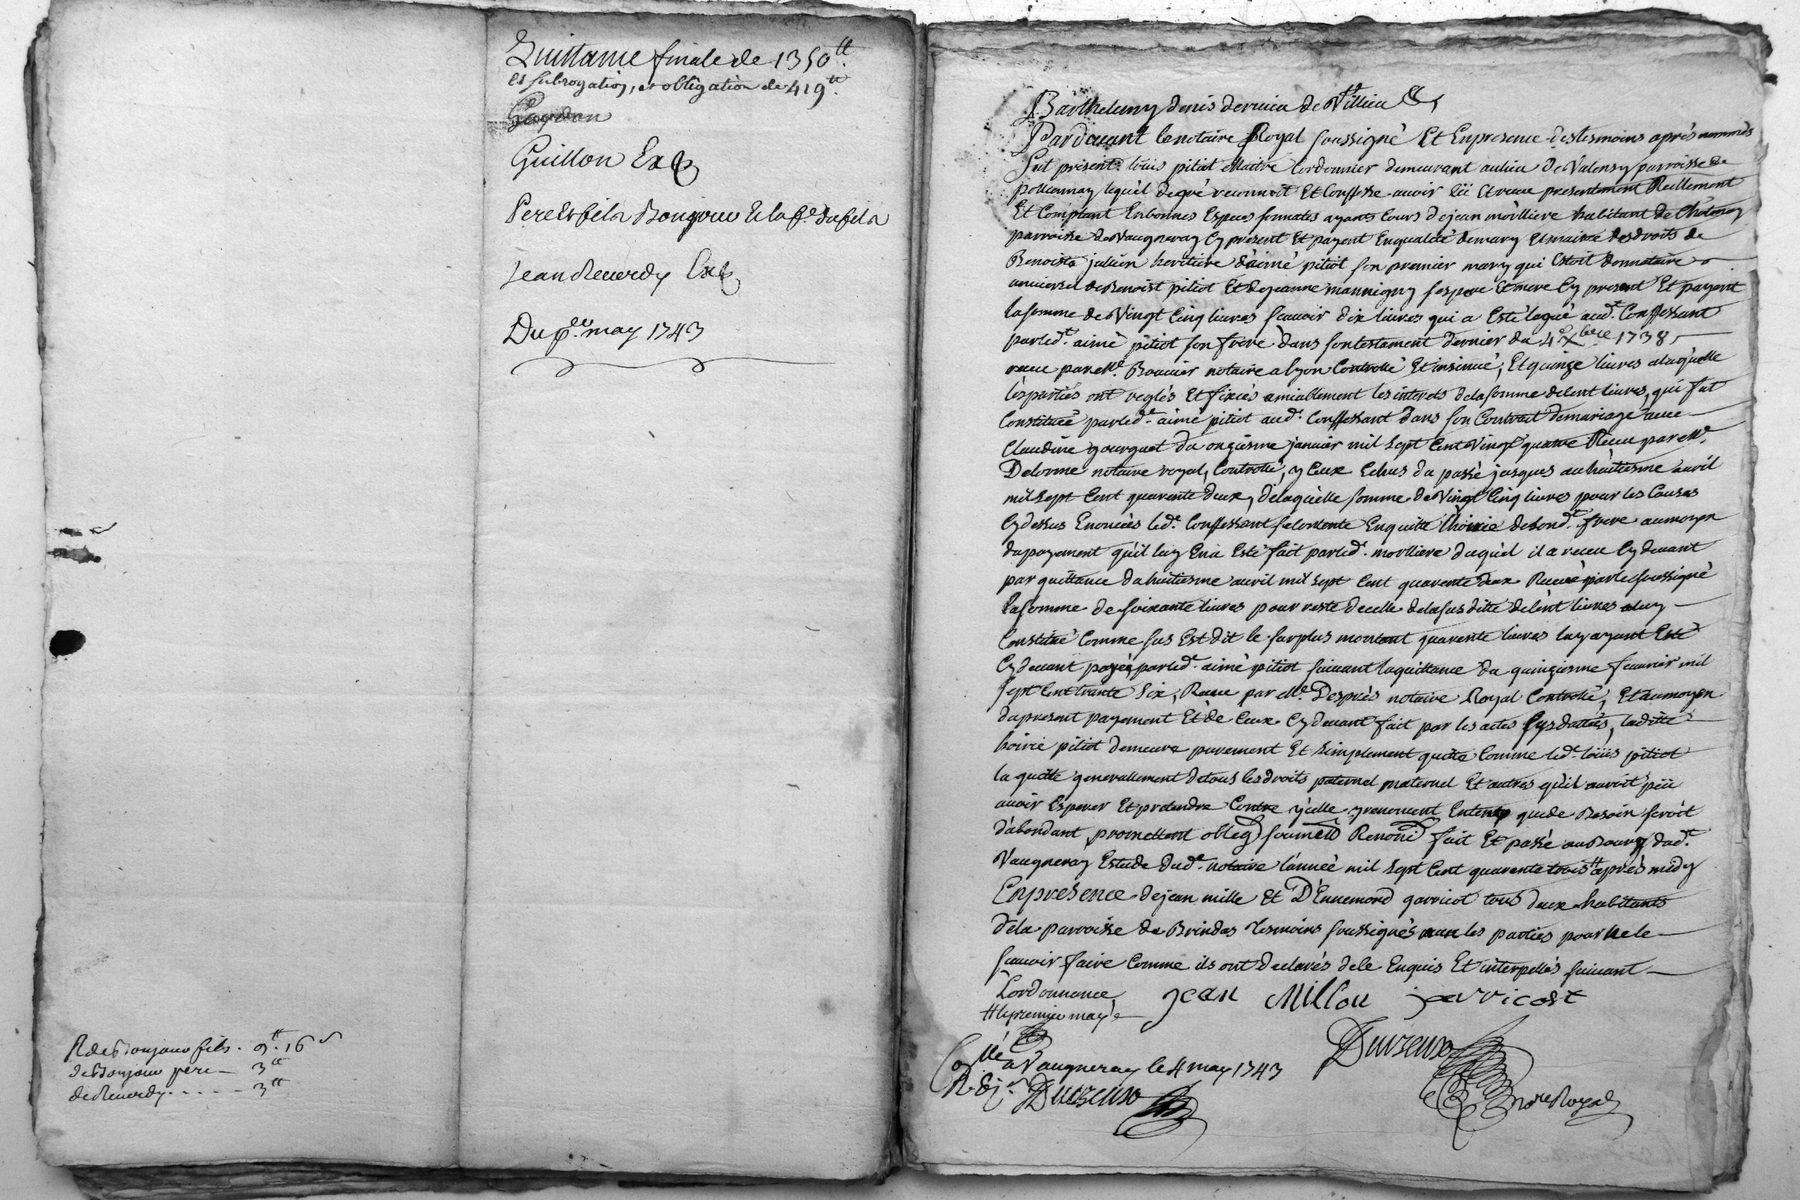 Quittance finale de 1350ᵗᵗ.
et subrogation, et obligation de 419ᵗᵗ.
Guillon Ex
Pere et fils Bonjour & la fᵉ. du fils
Jean Reverdy Ex
Du pᵉʳ may 1743
R de Bonjour fils . 9ᵗᵗ. 16ˢ
de Bonjour père — 3ᵗᵗ
de Reverdy . . . . . 3ᵗᵗ
Barthelemy denis
Pardevant le notaire Royal soussigné Et En presence des tesmoins après nommés
fut présent loüis pitiot Maitre Cordonnier demeurant au lieu de Valensy parroisse de
pollionnay lequel de gré reconnoit Et Confesse avoir Eü Et receu presentement Reellement
Et Comptant En bonnes Especes sonnates ayants Cours de jean morlliere habitant de
parroisse de Vaugneray Cy présent Et payant En qualité de mary Et maitre des droits de
Benoiste jullien heritiere d'aimé pitiot son premier mary qui Estoit donnataire
universel de Benoist pitiot Et de jeanne mannigny ses pere Et mere Cy present Et payant
la somme de Vingt Cinq livres scavoir dix livres qui a Esté legué audᵗ. Confessant
par ledᵗ. aimé pitiot son frere dans son testament dernier du 4ᵉ xbre 1738
receu par mᵉ. Bouvier notaire a lyon Controllé Et insinué, Et quinze livres a laquelle
les parties ont reglés Et fixés amiablement les interets de la somme de Cent livres, qui fut
Constituée par ledᵗ. aimé pitiot audᵗ. Confessant dans son Contrait de mariage avec
Claudine gourguet du onzieme janvier mil sept Cent Vingt quatre Receu par mᵉ.
Delorme notaire royal, Controllé, yceux Echus du passé jusques au huitieme avril
mil sept Cent quarente deux, de laquelle somme de Vingt Cinq livres pour les Causes
Cy dessus Enoncées ledᵗ. Confessant se Contente En quitte l'hoirie de sondᵗ. frere au moyen
du payement qu'il luy En a Esté fait par ledᵗ. morlliere duquel il a receu Cy devant
par quittance du huitieme avril mil sept Cent quarente deux Receue par le soussigné
la somme de soixante livres pour reste de celle de la susditte de Cent livres a luy
Constitué Comme sus Est dit le surplus montant quarente livres luy ayant Esté
Cy devant payés par ledᵗ. aimé pitiot suivant la quittance du quinzieme fevrier mil
sept Cent trante six, Receu par mᵉ Desprès notaire Royal Controllé, Et au moyen
du present payement Et de Ceux Cy devant fait par les actes Cy dattés, laditte
hoirie pitiot demeure purement Et simplement quitte Comme ledᵗ. loüis pitiot
la quitte generallement de tous les droits paternel maternel Et autres qu'il auroit peü
avoir Esperer Et pretendre Contre ycelle y renoncent Entent que de Besoin seroit
d'abondant, promettant oblig soumett Renonc fait Et passé au Bourg dudᵗ.
Vaugneray Estude dudᵗ. notaire l'année mil sept Cent quarente trois ⧺ après midy
En presence de jean mille Et D'Ennemond garricot tous deux habitants
de la parroisse de Brindas tesmoins soussignés non les parties pour ne le
scavoir faire Comme ils ont declarés de ce Enquis Et interpellés suivant
L'ordonnance,
⧺ le premier may
jean Millou jarricost
Collé a Vaugneray le 4 may 1743
nore Royal